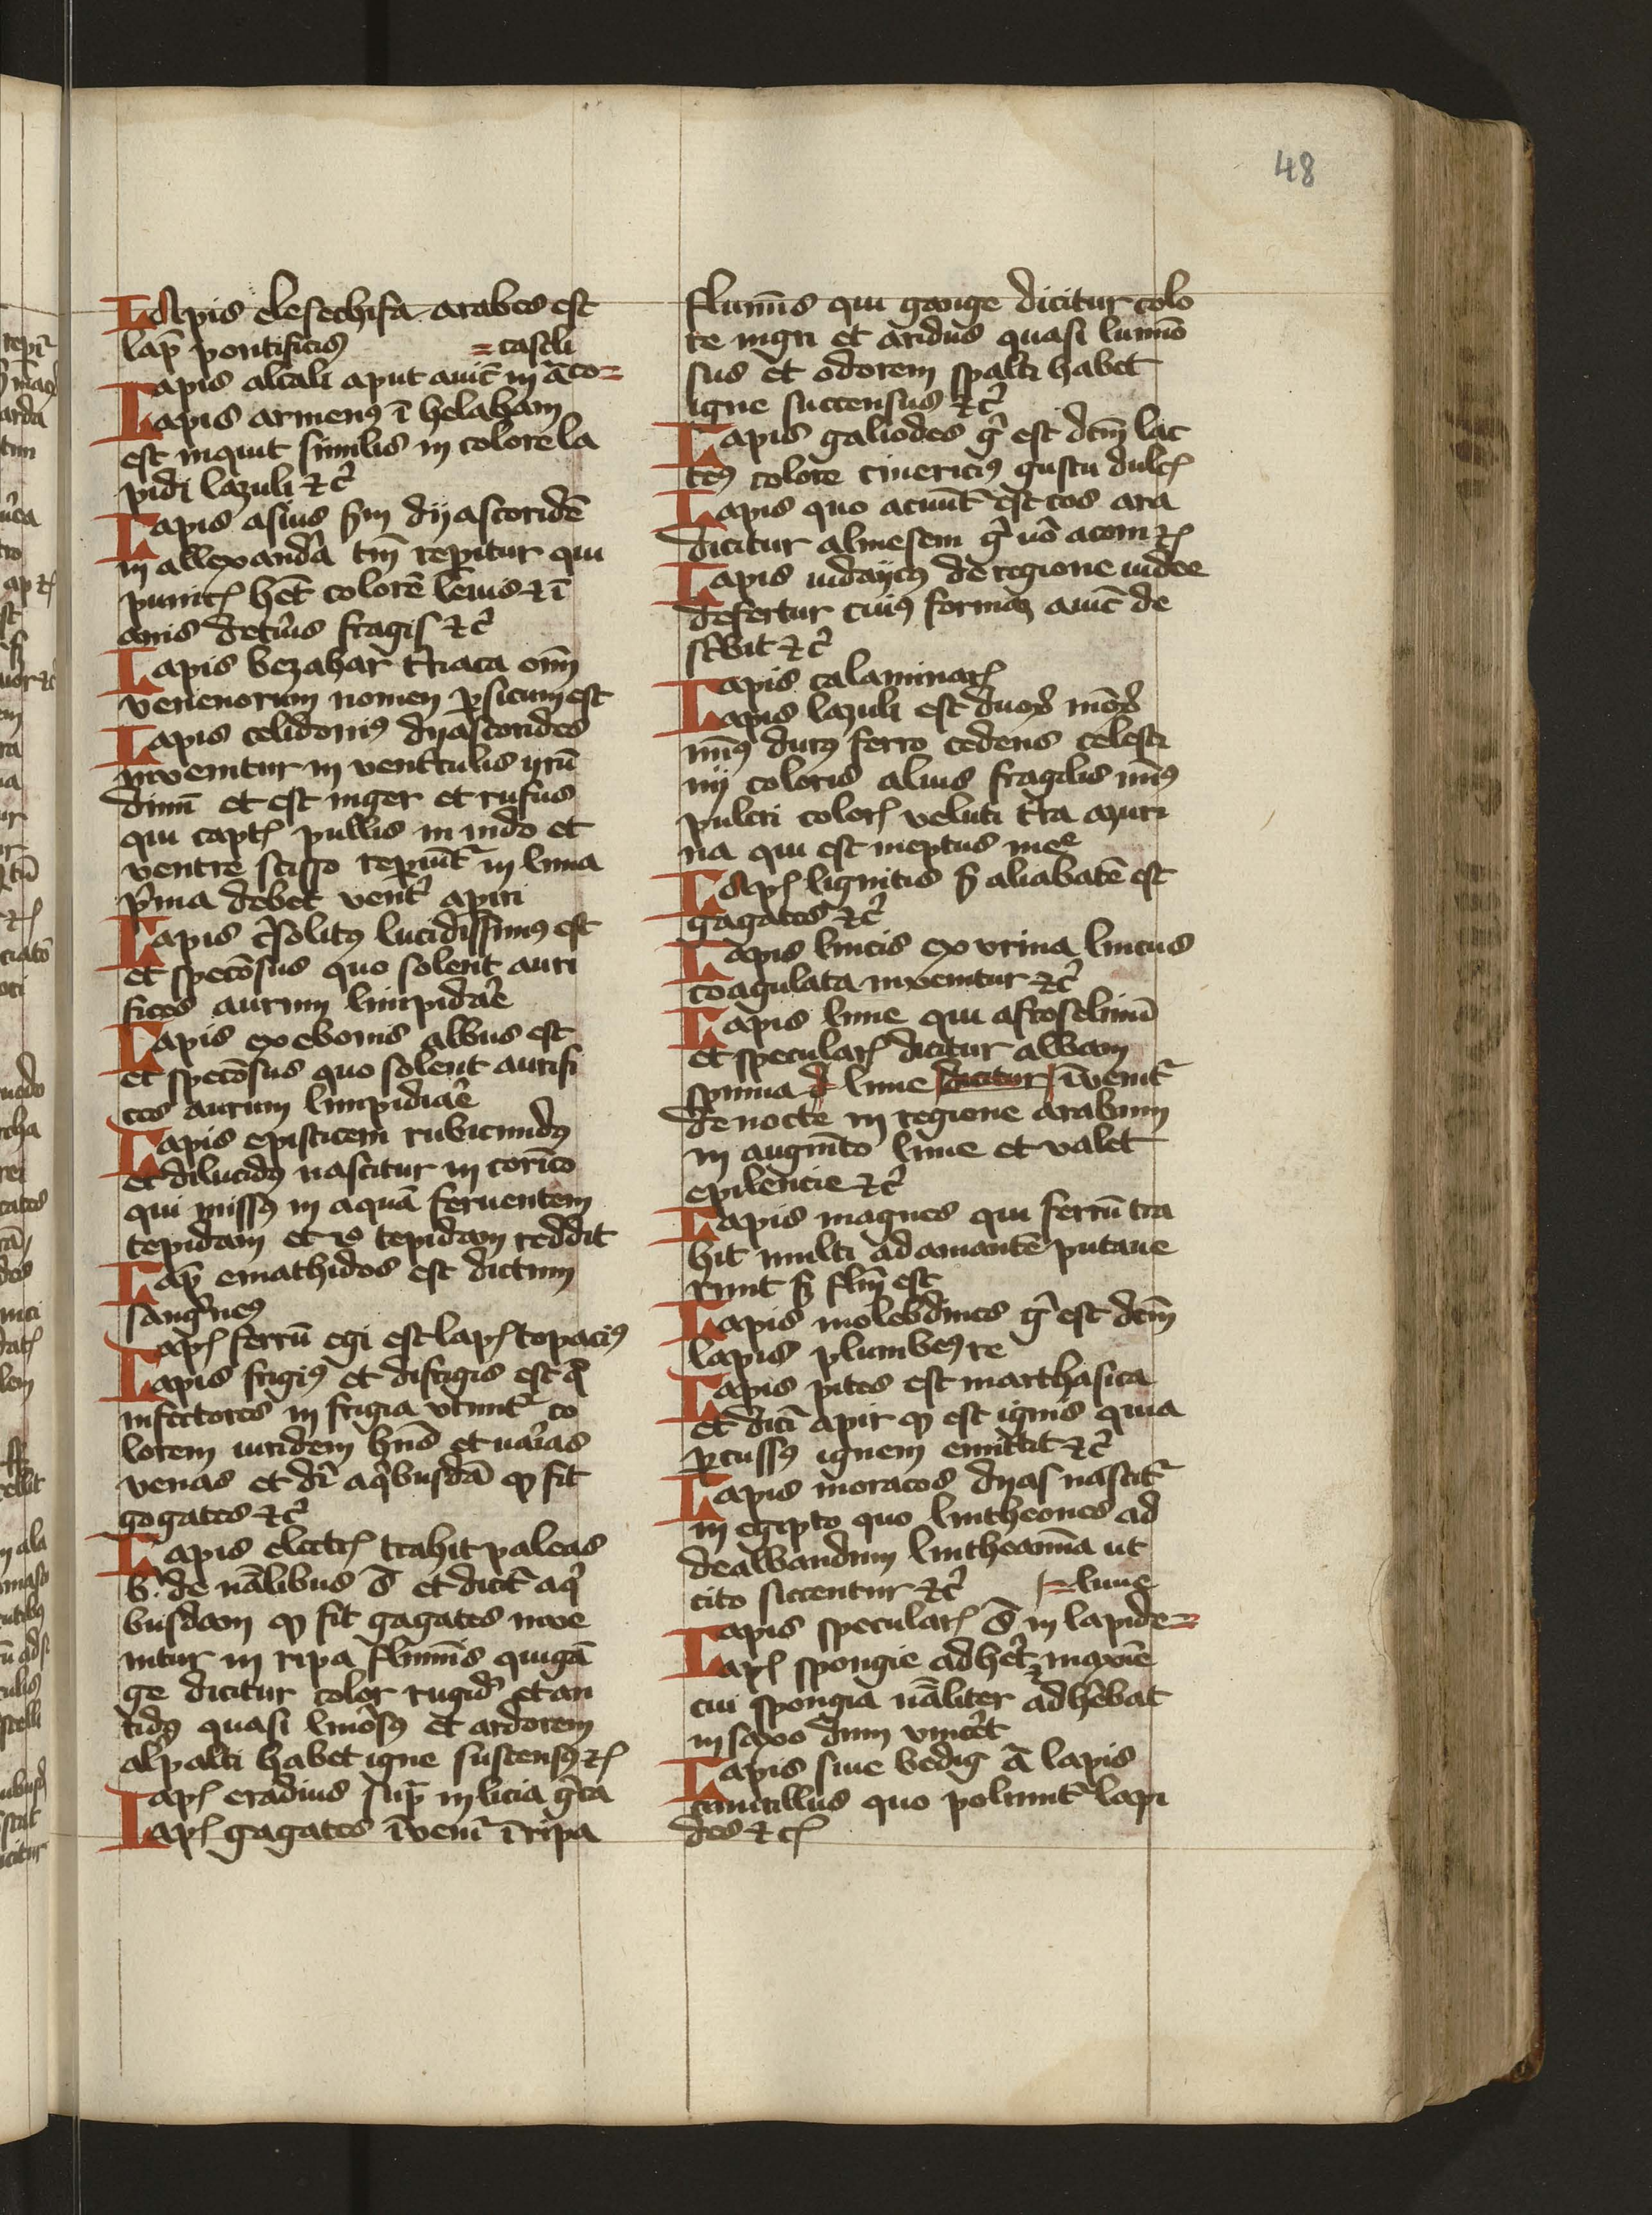 48
LApis elesechifa arabes est
lap̄ pontificiꝰ =castli
Lapis alcali aput auic̄ in ā co=
Lapis armenꝰ ī helaham
est inquit similis in colore la
pidi lazuli ⁊c̄
Lapis asius s̄m dyascoridē
in allexandͥa tm̄ repitur qui
punicꝭ hēt colorē leuis ⁊ ī
anis fragis ⁊c̄
Lapis bezahar tiriaca oīm
venenorum nomen ꝑsicum est
Lapis celidoniꝰ dyascorides
inuenitur in ventͥculis yrū
dinū et est niger et rufus
qui captꝭ pullis in nido et
ventre scisso repiūtͬ in luna
pͥma debet ventͬ apiri
Lapis cͥsolitꝰ lucidissimꝰ est
et specōsus quo solent auri
fices aurum limpidaͤe
Lapis ex ebonis albus est
et specōsus quo solent aurifi
ces aurum limpidiaͤe
Lapis episticem rubicundꝰ
et dilucidꝰ nascitur in corīto
qui missꝰ in aquā feruentem
tepidam et tepidam reddit
Lap̄ emathidos est dictum
sangͥneꝰ
Lapꝭ ferrū egi est lapꝭ topaciꝰ
Lapis frigiꝰ et difrigis est ꝙ
infectores in frigia vtuntͬ co
lorem iuridem hn̄s et uaͥias
venas et dr̄ aqͥbusdā ꝙ sit
gagates ⁊c̄
Lapis electꝭ trahit paleas
v. de nālibus s̄ et dicitͬ aqͥ
busdam ꝙ sit gagates inue
nitur in ripa flumīs qui gā
ge dicitur color rugidꝰ et an
tidꝰ quasi lmōsꝰ et ardorem
alpalti habet igne suscensꝰ ⁊ꝭ
Lapꝭ eradius sup̄ in licia gͥca
Lapꝭ gagates īuenitͬ ī ripa
flumīs qui gange dicitur colo
re nigri et aridus quasi lumīo
sus et odorem spalti habet
igne succensus ⁊c̄
Lapis galiodes gͥ est dcm̄ lac
teꝰ colore cinericiꝰ gustu dulcꝭ
Lapis quo acuūtͬ est cos ara
dicitur almesem gͥ uō acom ⁊ꝭ
Lapis iudaycꝰ de regione iudee
defertur cuiꝰ formaꝫ auic̄ de
scͥbit ⁊c̄
Lapis calaminarꝭ
Lapis lazuli est duorꝝ mōrꝝ
inūꝰ durꝰ ferro cedens celesti
ni coloris alius fragilis minꝰ
pulcri colorꝭ veluti tͤra azuri
na qui est ineptus meͤ
LApꝭ lignitis s̄ aliabatē est
gagates ⁊c̄
Lapis lincis ex vrina lincus
coagulata inuenitur ⁊c̄
Lapis lune qui afroselinū
et specularꝭ dicitur albam
spuma d lune dicitur īuenitͬ
de nocte in regione arabum
in augmēto lune et valet
epilencie ⁊c̄
Lapis magnes qui ferrū tra
hit multi adamantē putaue
runt s̄ flm̄ est
Lapis molebdines gͥ est dcm̄
lapis plumbeꝰ re
Lapis pites est marthasica
et dicͥ apir ꝙ est ignis quia
ꝑcussꝰ ignem emittit ⁊c̄
Lapis moracos dyas nascitͬ
in egipto quo lintheones ad
dealbandum lintheamīa ut
cito siccentur ⁊c̄ =lune
Lapis specularꝭ s̄ in lapide=
Lapꝭ spongie adhetͬ maxīe
cui spongia nāliter adhēbat
in saxo dum viueͤt
Lapis siue bedig ā lapis
cauticillus quo poliuntͬ lapi
des ⁊cꝭ